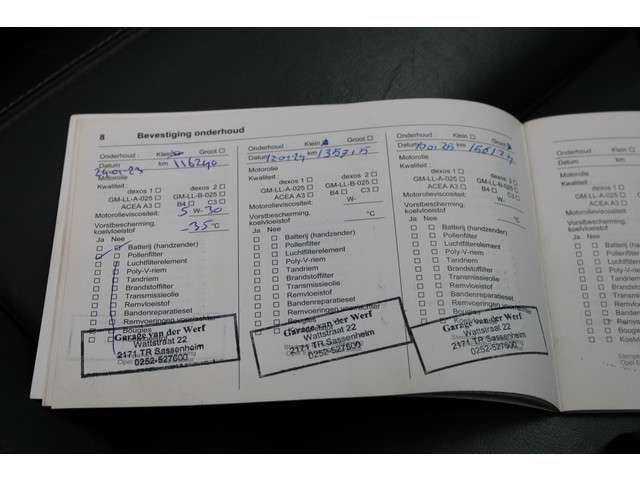 8 Bevestiging onderhoud
Onderhoud Klein Groot
Datum km 116240
24-01-23
Motorolie
Kwaliteit dexos 1 dexos 2
GM-LL-A-025 GM-LL-B-025
ACEA A3 B4 C3
Motorolieviscositeit: 5 W-30
Vorstbescherming,
koelvloeistof -35°C
Ja Nee
Batterij (handzender)
Pollenfilter
Luchtfilterelement
Poly-V-riem
Tandriem
Brandstoffilter
Transmissieolie
Remvloeistof
Bandenreparatieset
Remvoeringen voor/achter
Bougies
Garage van der Werf
Wattstraat 22
2171 TR Sassenheim
0252-527600
Onderhoud Klein Groot
Datum km
Motorolie
Kwaliteit dexos 1 dexos 2
GM-LL-A-025 GM-LL-B-025
ACEA A3 B4 C3
Motorolieviscositeit: W-
Vorstbescherming,
koelvloeistof °C
Ja Nee
Batterij (handzender)
Pollenfilter
Luchtfilterelement
Poly-V-riem
Tandriem
Brandstoffilter
Transmissieolie
Remvloeistof
Bandenreparatieset
Remvoeringen voor/achter
Bougies
Garage van der Werf
Wattstraat 22
2171 TR Sassenheim
0252-527600
Onderhoud Klein Groot
Datum km
Motorolie
Kwaliteit dexos 1 dexos 2
GM-LL-A-025 GM-LL-B-025
ACEA A3 B4 C3
Motorolieviscositeit: W-
Vorstbescherming,
koelvloeistof °C
Ja Nee
Batterij (handzender)
Pollenfilter
Luchtfilterelement
Poly-V-riem
Tandriem
Brandstoffilter
Transmissieolie
Remvloeistof
Bandenreparatieset
Remvoeringen voor/achter
Bougies
Garage van der Werf
Wattstraat 22
2171 TR Sassenheim
0252-527600
Onderhoud
Datum
Motorolie
Kwaliteit
GM-LL-A
ACE
Motorolieviscos
Vorstbescherming
koelvloeistof
Ja Nee